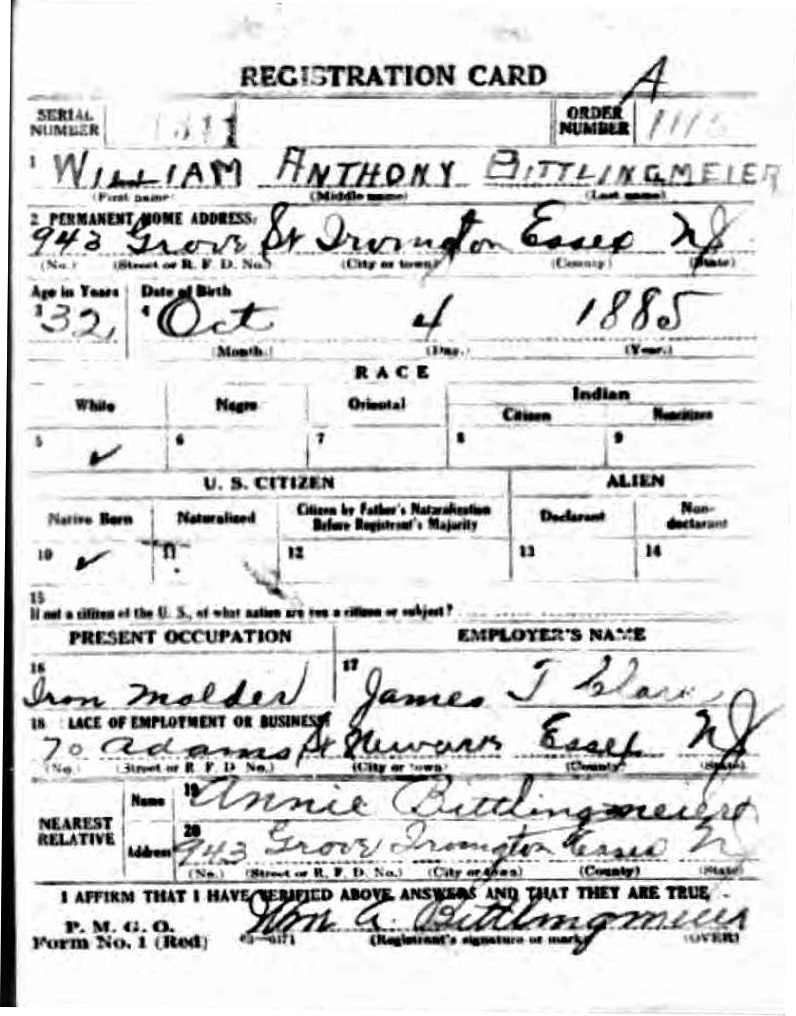 REGISTRATION CARD A
SERIAL NUMBER ORDER NUMBER
1 WILLIAM ANTHONY BITTLINGMEIER
(First name) (Middle name) (Last name)
2 PERMANENT HOME ADDRESS:
943 Grove St Irvington Essex NJ
(No.) (Street or R. F. D. No.) (City or town) (County) (State)
Age in Years Date of Birth
3 32 4 Oct 4 1885
(Month.) (Day.) (Year.)
RACE
White Negro Oriental Indian
Citizen Noncitizen
5 ✓ 6 7 8 9
U. S. CITIZEN ALIEN
Native Born Naturalized Citizen by Father's Naturalization Before Registrant's Majority Declarant Non-declarant
10 ✓ 11 12 13 14
15
If not a citizen of the U. S., of what nation are you a citizen or subject?
PRESENT OCCUPATION EMPLOYER'S NAME
16 17
Iron Molder James T
18 LACE OF EMPLOYMENT OR BUSINESS
70 Adams St Newark Essex NJ
(No.) (Street or R. F. D. No.) (City or town) (County) (State)
NEAREST RELATIVE
Name 19 Annie Bittlingmeier
Address 20 943 Grove Irvington Essex N
(No.) (Street or R. F. D. No.) (City or town) (County) (State)
I AFFIRM THAT I HAVE VERIFIED ABOVE ANSWERS AND THAT THEY ARE TRUE
P. M. G. O.
Form No. 1 (Red) 03—6171 Wm A. Bittlingmeier
(Registrant's signature or mark) (OVER)